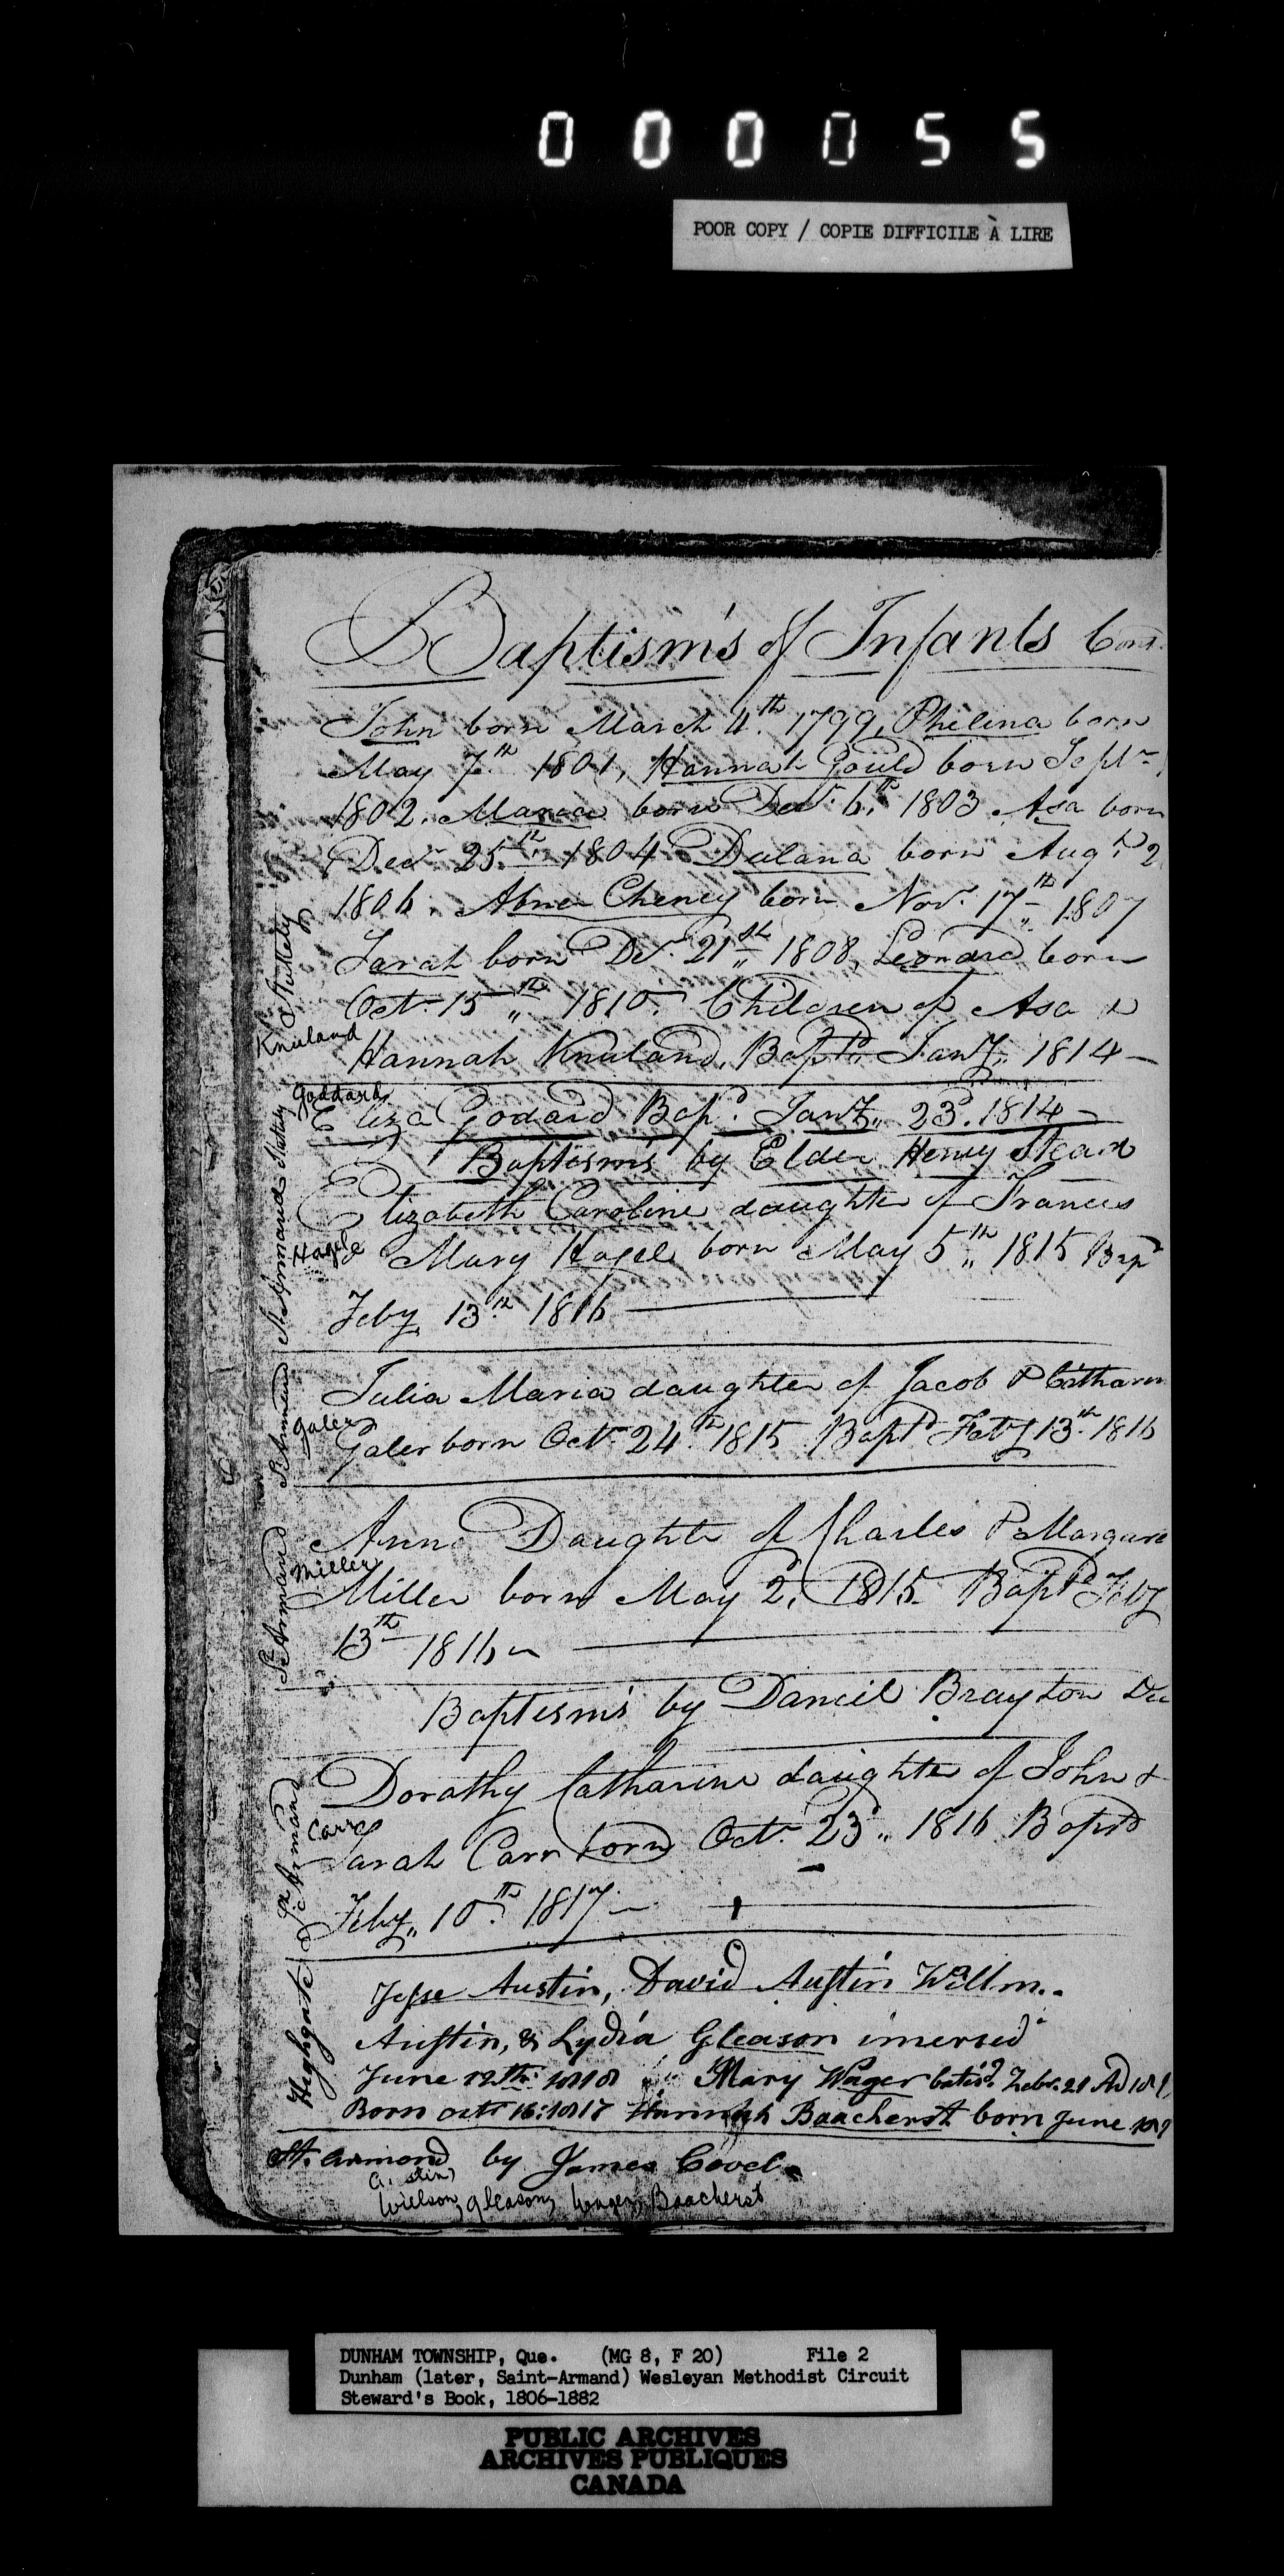 000055
POOR COPY / COPIE DIFFICILE À LIRE
Baptism's of Infants Cont.
John born March 4.th 1799, Philena born
May 7th 1801, Hannah Gould born Septr
1802. Maria born Decr. 6.th 1803 Asa born
Decr 25.th 1804 Dulana born Aug.t 2
1806. Abner Cheney born Novr. 17th 1807
Sarah born Dr. 21st 1808, Leonard born
Octr 15th 1810. Children of Asa &
Hannah Knuland. Baptd. Jany,, 1814 —
Kneland
Goddard
Eliza Godard Bapd. Jany,, 23d. 1814 —
Baptism's by Elder Henry Stead
Elizabeth Caroline daughter of Frances
Hagele
& Mary Hagel born May 5th,, 1815 Bap
Feby 13th 1816
St Armand
Julia Maria daughter of Jacob & Catharin
Galer
Galer born Octr 24.th 1815 Baptd Feby 13th 1816
St Armand
Ann Daughter of Charles & Margare
Miller
Miller born May 2d, 1815 Baptd Feby
13th 1816
Baptism's by Daniel Brayton
St Armand
Dorathy Catharine daughter of John &
Carr
Sarah Carr born Octr 23d,, 1816 Baptd
Feby,, 10th. 1817 —
Highgate
Jesse Austin, David Austin Willm..
Austin, & Lydia Gleason imersed
June 12th 1818 Mary Wager batisd. Febr. 21 AD 181
Born octr 16: 1817 Hannah Baacherst born June
St. armond by James Covel
Austin
Wielson, Gleason, Wager, Baacherst
DUNHAM TOWNSHIP, Que. (MG 8, F 20) File 2
Dunham (later, Saint-Armand) Wesleyan Methodist Circuit
Steward's Book, 1806-1882
PUBLIC ARCHIVES
ARCHIVES PUBLIQUES
CANADA